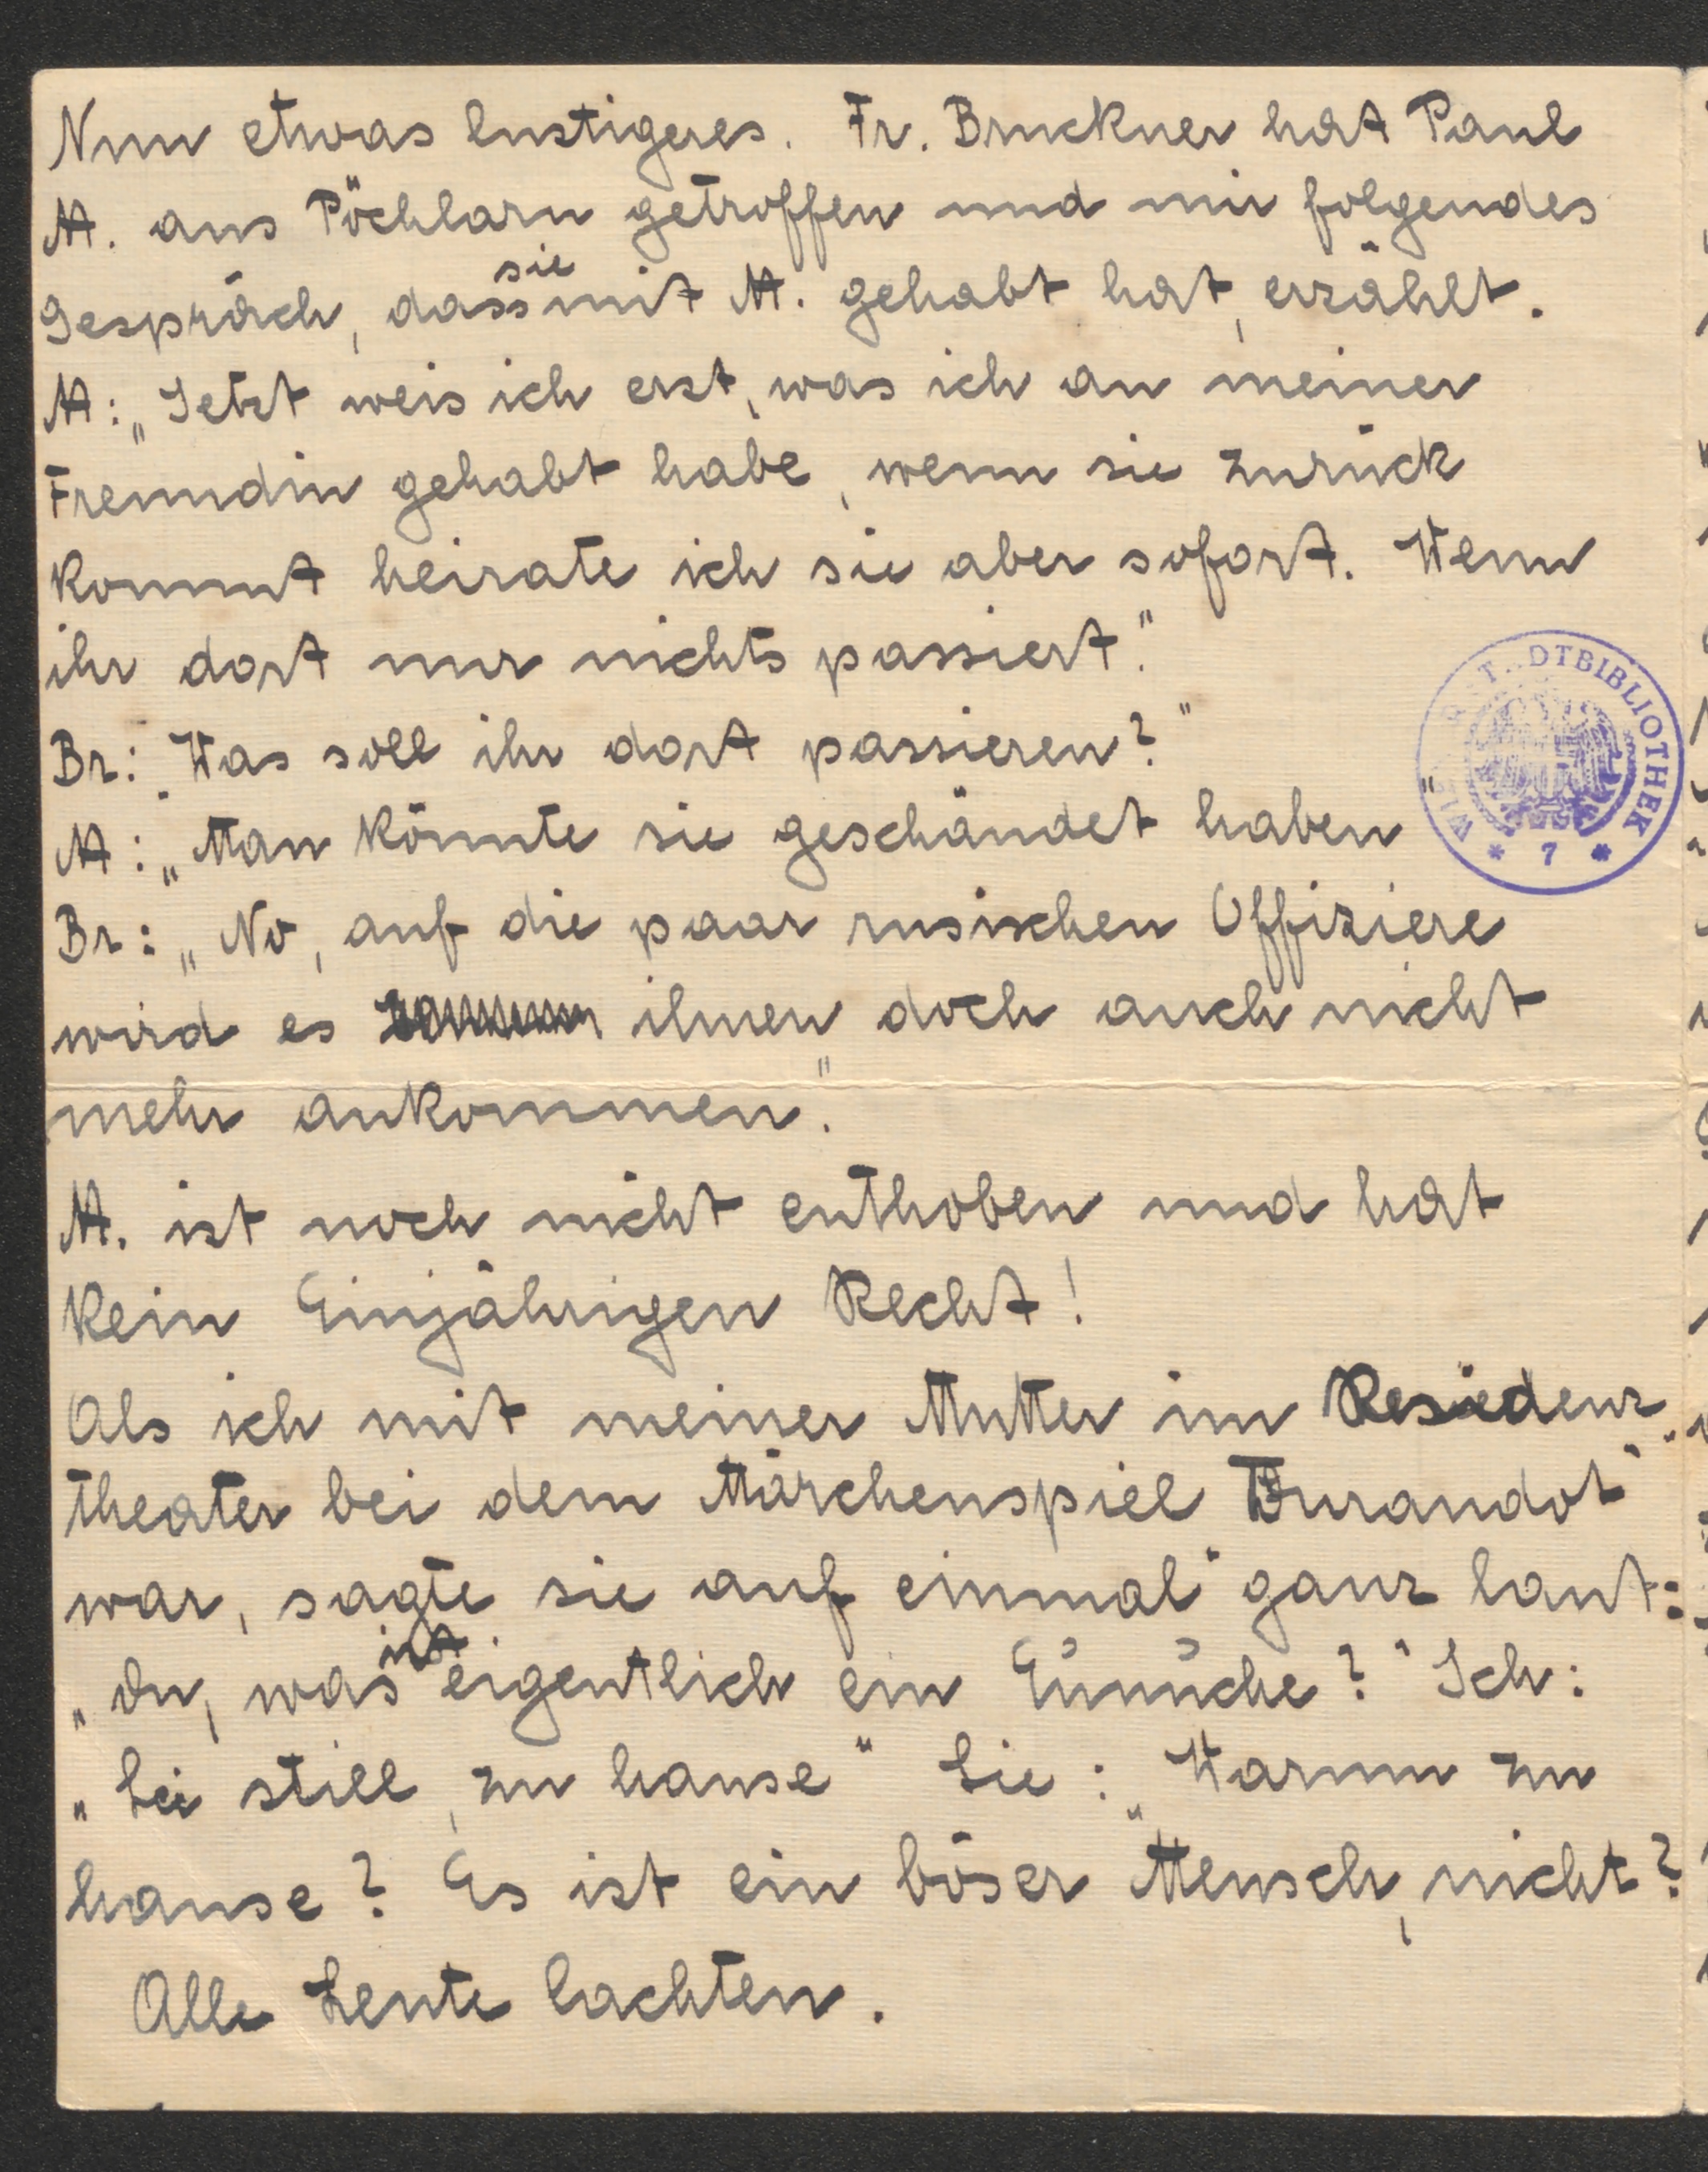 Nun etwas lustigeres. Fr. Bruckner hat Paul
M. aus Pöchlarn getroffen und mir folgendes
sie
Gespräch, dass mit M. gehabt hat, erzählt.
M: „Jetzt weis ich erst, was ich an meiner
Freundin gehabt habe, wenn sie zurück
kommt heirate ich sie aber sofort. Wenn
ihr dort nur nichts passiert."
Br: „Was soll ihr dort passieren?"
M: „Man könnte sie geschändet haben
Br: „No, auf die paar rusischen Offiziere
wird es ihnen doch auch nicht
mehr ankommen."
M. ist noch nicht enthoben und hat
kein Einjährigen Recht!
Als ich mit meiner Mutter im Residenz
theater bei dem Märchenspiel „Turandot"
war, sagte sie auf einmal ganz laut:
ist
„du, was eigentlich ein Eunuche?" Ich:
„Sei still, zu hause" Sie: „Warum zu
hause? Es ist ein böser Mensch, nicht?
Alle Leute lachten.
DTBIBLIOTHEK
* 7 *